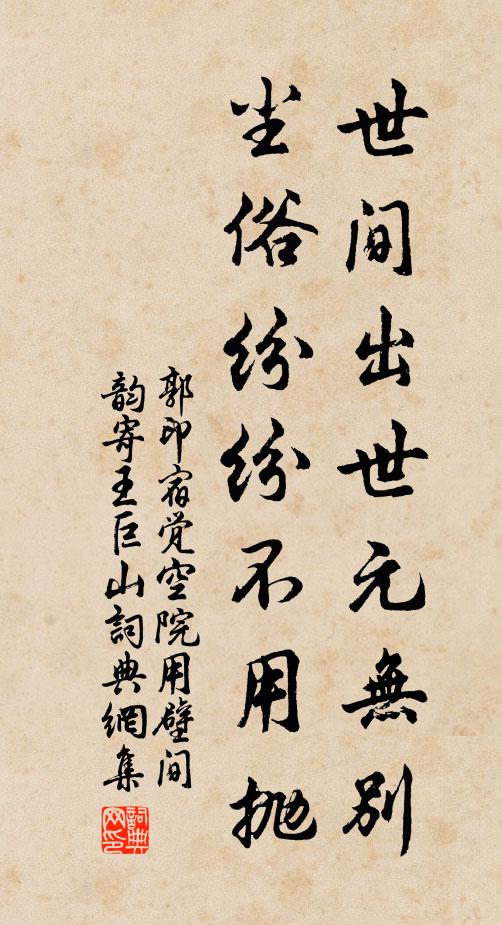 世间出世元無别
尘俗纷纷不用抛
郭印宿觉空院用壁间
韵寄王巨山詞典網集
詞典网印